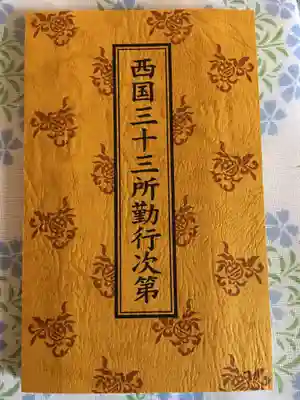 西国三十三所勤行次第